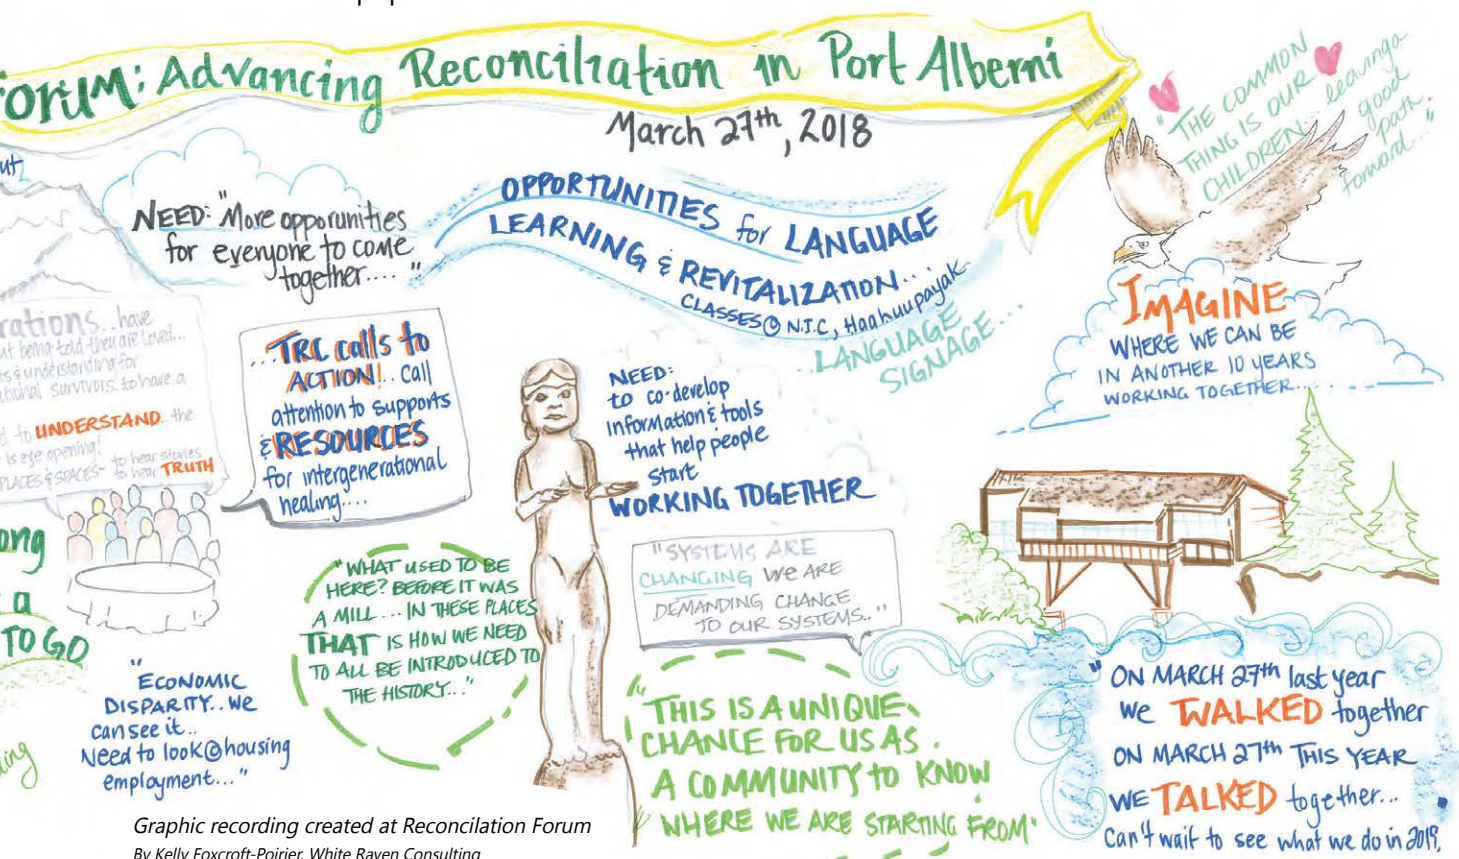 ORUM: Advancing Reconciliation in Port Alberni
March 27th, 2018
"THE COMMON
THING IS OUR
CHILDREN... leaving a
good
path
forward..."
NEED: "More opporunities
for everyone to come
together...."
OPPORTUNITIES for LANGUAGE
LEARNING & REVITALIZATION...
CLASSES @ N.T.C, Haahuupayak
...LANGUAGE
SIGNAGE...
IMAGINE
WHERE WE CAN BE
IN ANOTHER 10 YEARS
WORKING TOGETHER...
rations..have
ut being told they are loved...
ts & understanding for
ational survivors. to have a
d to UNDERSTAND.. the
is eye opening!
PLACES & SPACES- to hear stories
to hear TRUTH
...TRC calls to
ACTION!.. Call
attention to supports
& RESOURCES
for intergenerational
healing....
NEED:
to co-develop
information & tools
that help people
start
WORKING TOGETHER
"SYSTEMS ARE
CHANGING WE ARE
DEMANDING CHANGE
TO OUR SYSTEMS.."
ong
a
TO GO
"WHAT USED TO BE
HERE? BEFORE IT WAS
A MILL... IN THESE PLACES
THAT IS HOW WE NEED
TO ALL BE INTRODUCED TO
THE HISTORY..."
"ECONOMIC
DISPARITY.. WE
can see it..
Need to look @ housing
employment..."
ing
"THIS IS A UNIQUE
CHANCE FOR US AS
A COMMUNITY to KNOW
WHERE WE ARE STARTING FROM"
"ON MARCH 27th last year
we WALKED together
ON MARCH 27th THIS YEAR
WE TALKED together...
Can't wait to see what we do in 2019.
Graphic recording created at Reconcilation Forum
By Kelly Foxcroft-Poirier, White Raven Consulting